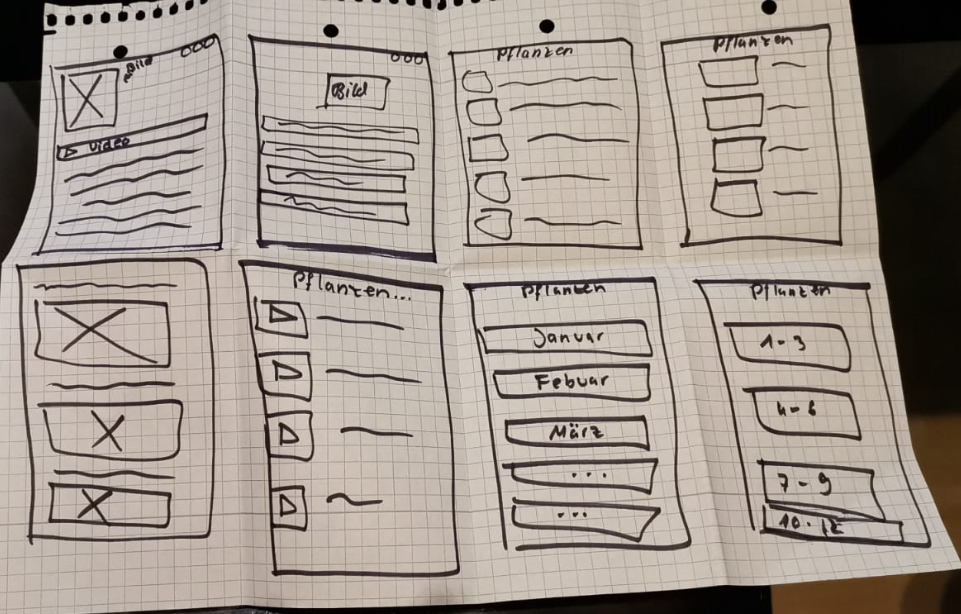 Bild
Video
Bild
Pflanzen
Pflanzen
Pflanzen...
Pflanzen
Januar
Febuar
März
...
...
Pflanzen
1-3
4-6
7-9
10-12